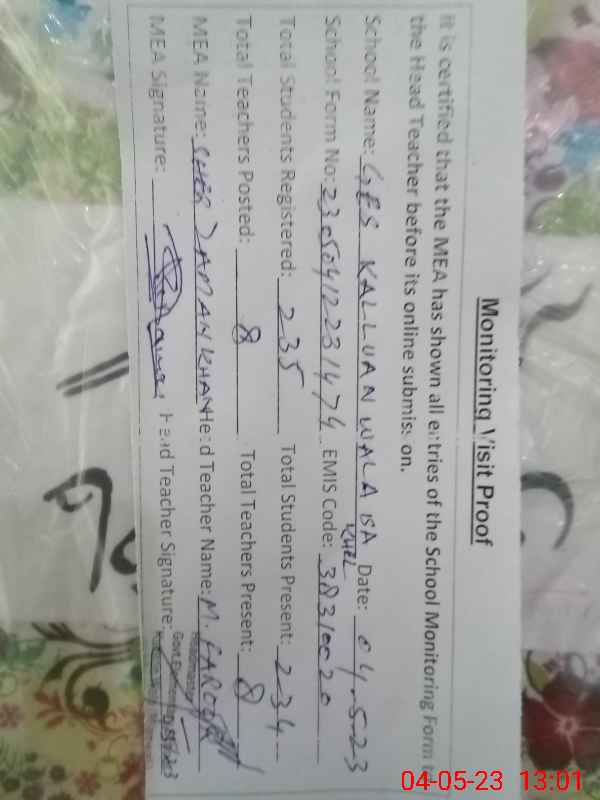 Monitoring Visit Proof
It is certified that the MEA has shown all entries of the School Monitoring Form t
the Head Teacher before its online submission.
School Name: GES KALLUAN WALA ISA KHEL Date: 04-5-23
School Form No: 23050412231474 EMIS Code: 38310020
Total Students Registered: 235 Total Students Present: 234
Total Teachers Posted: 8 Total Teachers Present: 8
MEA Name: SHER ZAMAN KHAN Head Teacher Name: M. FAROOQ
MEA Signature: Head Teacher Signature:
Headmaster
04-05-23 13:01